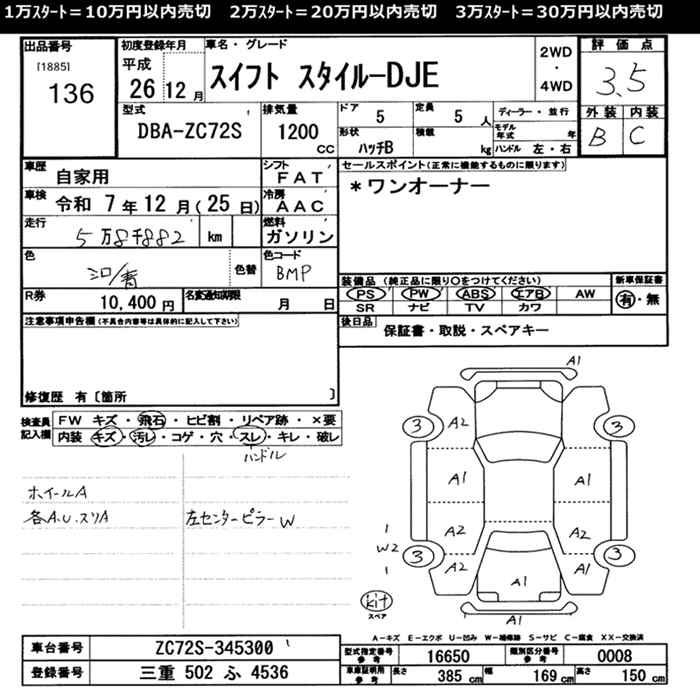 1万ｽﾀｰﾄ＝10万円以内売切　2万ｽﾀｰﾄ＝20万円以内売切　3万ｽﾀｰﾄ＝30万円以内売切
出品番号
[1885]
136
初度登録年月
平成
26 12 月
車名・グレード
スイフト スタイルーDJE
2WD
・
4WD
評価点
3.5
外装 内装
B C
型式
DBA-ZC72S
排気量
1200
CC
ドア 5
定員 5 人
形状 ハッチB
積載 kg
ディーラー・並行
モデル年式 年
ハンドル 左・右
車歴
自家用
シフト
FAT
車検
令和 7 年 12 月 ( 25 日)
冷房
AAC
走行
5万8千882 km
燃料
ガソリン
色
シロ/青
色替
色コード
BMP
R券
10,400 円
名変通知期限 月 日
セールスポイント(正常に機能するものに限ります)
＊ワンオーナー
装備品 (純正品に限り○をつけてください)
PS PW ABS エアB AW
SR ナビ TV カワ
新車保証書
有・無
後日品 保証書・取説・スペアキー
注意事項申告欄(不具合内容等は具体的に記入して下さい)
修復歴 有〔箇所 〕
検査員記入欄
FW キズ・飛石・ヒビ割・リペア跡・×要
内装 キズ・汚レ・コゲ・穴・スレ・キレ・破レ
ハンドル
ホイールA
各A.U.スリA
左センターピラーW
A1
3 A2 3
A1 A1
1
W2
1
A2 A2
3 A2 A1 3
A1
kit
スペア
A1
A－キズ E－エクボ U－凹み W－補修跡 S－サビ C－腐食 XX－交換済
車台番号 ZC72S-345300
登録番号 三重 502 ふ 4536
型式指定番号 参考 16650
類別区分番号 参考 0008
車庫証明用 参考 長さ 385 cm 幅 169 cm 高さ 150 cm